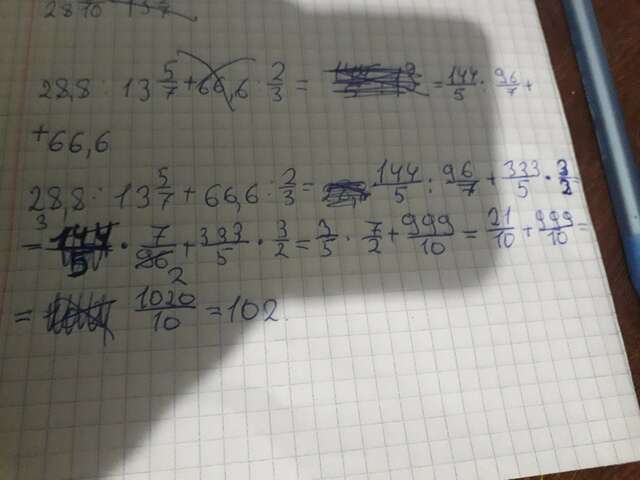 28,8 : 13 5/7 + 66,6 : 2/3 = = 144/5 · 96/7 +
+ 66,6
28,8 : 13 5/7 + 66,6 : 2/3 = 144/5 : 96/7 + 333/5 · 3/2 =
= 3 144/5 · 7/96 2 + 333/5 · 3/2 = 3/5 · 7/2 + 999/10 = 21/10 + 999/10 =
= 1020/10 = 102.